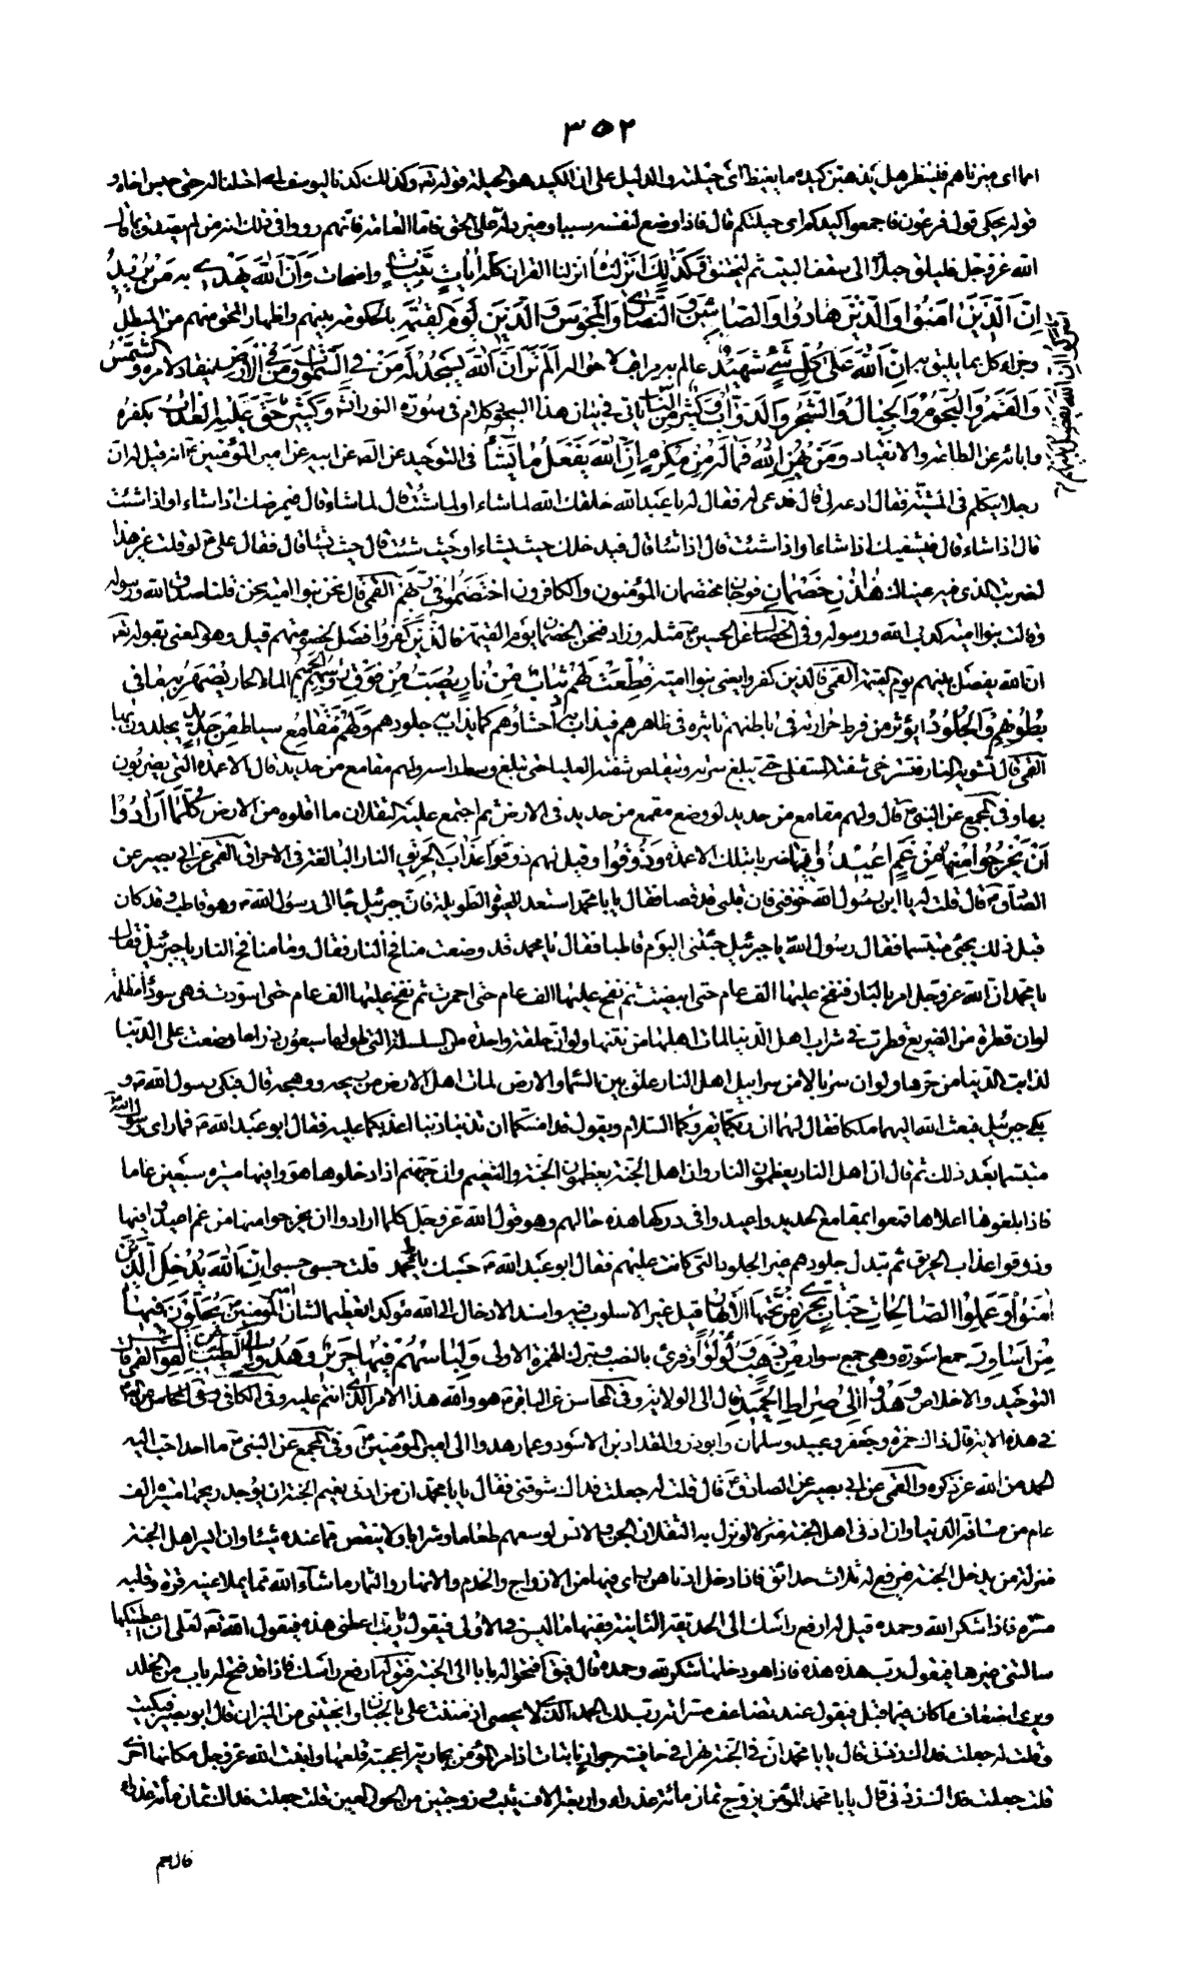 ٣٥٢
اما اى ميز ناهم فلينظر هل يذهبن كيده ما يغيظ اى حيلته والدليل على ان الكيد هو الحيلة قوله تعـ وكذلك كدنا ليوسف اى احتلنا له حتى حبس اخاه و
قوله يحكى قول فرعون فاجمعوا كيدكم اى حيلتكم قال فاذا وضع لنفسه سببا وميز دله على الحق فاما العامة فانهم رووا فى ذلك انه من لم يصدق بما قال
الله عز وجل فليلق حبلا الى سقف البيت ثم ليختنق وَكَذٰلِكَ اَنْزَلْناهُ انزلنا القران كله اٰياتٍ بَيِّناتٍ واضحات وَاَنَّ اللّٰهَ يَهْدى به مَنْ يُريدُ
اِنَّ الَّذينَ اٰمَنُوا وَالَّذينَ هٰادُوا وَالصّٰابِئينَ وَالنَّصٰارىٰ وَالْمَجُوسَ وَالَّذينَ يَوْمَ الْقِيٰمَةِ بالحكومة بينهم واظهار المحق منهم من المبطل
اشركوا ان الله يفصل بينهم
وجزاء كل بما يليق به اِنَّ اللّٰهَ عَلىٰ كُلِّ شَىْءٍ شَهيدٌ عالم به مراقب لاحواله اَلَمْ تَرَ اَنَّ اللّٰهَ يَسْجُدُ لَهُ مَنْ فِى السَّمٰوٰاتِ وَمَنْ فِى الْاَرْضِ ينقاد لامره وَالشَّمْسُ
وَالْقَمَرُ وَالنُّجُومُ وَالْجِبٰالُ وَالشَّجَرُ وَالدَّوٰابُّ وَكَثيرٌ مِنَ النّٰاسِ ياتى فى بيان هذا السجود كلام فى سورة النور انشـ وَكَثيرٌ حَقَّ عَلَيْهِ الْعَذٰابُ بكفره
وابائه عن الطاعة والانقياد وَمَنْ يُهِنِ اللّٰهُ فَمٰا لَهُ مِنْ مُكْرِمٍ اِنَّ اللّٰهَ يَفْعَلُ مٰا يَشٰاءُ فى التوحيد عن الصـ عن ابيه عن امير المؤمنين ع انه قيل له ان
رجلا يتكلم فى المشية فقال ادعه لى قال فدعى له فقال له يا عبد الله خلقك الله لما شاء او لما شئت قال لما شاء قال فيمرضك اذا شاء او اذا شئت
قال اذا شاء قال فيشفيك اذا شاء او اذا شئت قال اذا شاء قال فيدخلك حيث يشاء او حيث شئت قال حيث يشاء قال فقال على ع لو قلت غير هذا
لضربت الذى فيه عيناك هٰذٰانِ خَصْمٰانِ فوجان مختصمان المؤمنون والكافرون اخْتَصَمُوا فى رَبِّهِمْ القمى قال نحن وبنو امية نحن قلنا صدق الله ورسوله
وقالت بنو امية كذب الله ورسوله وفى الخصال عن الحسين ع مثله وزاد فنحن الخصمان يوم القيمة فَالَّذينَ كَفَرُوا فصل لخصومتهم قيل وهو المعنى بقوله تعـ
ان الله يفصل بينهم يوم القيمة القمى فالذين كفروا يعنى بنو امية قُطِّعَتْ لَهُمْ ثِيٰابٌ مِنْ نٰارٍ يُصَبُّ مِنْ فَوْقِ رُؤُسِهِمُ الْحَميمُ الماء الحار يُصْهَرُ بِهِ مٰا فى
بُطُونِهِمْ وَالْجُلُودُ يؤثر من فرط حرارته فى باطنهم تاثيره فى ظاهرهم فيذاب به احشاؤهم كما يذاب به جلودهم وَلَهُمْ مَقٰامِعُ سياط مِنْ حَديدٍ يجلدون بها
القمى قال تشويه النار فتسترخى شفته السفلى حتى تبلغ سرته وتتقلص شفته العليا حتى تبلغ وسط راسه ولهم مقامع من حديد قال الاعمدة التى يضربون
بها وفى المجمع عن النبى ص قال ولهم مقامع من حديد لو وضع مقمع من حديد فى الارض ثم اجتمع عليه الثقلان ما اقلوه من الارض كُلَّمٰا اَرٰادُوا
اَنْ يَخْرُجُوا مِنْهٰا مِنْ غَمٍّ اُعيدُوا فيهٰا ضربا بتلك الاعمدة وَذُوقُوا وقيل لهم ذوقوا عَذٰابَ الْحَريقِ النار البالغة فى الاحراق القمى عن ابى بصير عن
الصادق ع قال قلت له يا ابن رسول الله خوفنى فان قلبى قد قسا فقال يا با محمد استعد للحيوة الطويلة فان جبرئيل جاء الى رسول الله ص وهو قاطب وقد كان
قبل ذلك يجىء متبسما فقال رسول الله يا جبرئيل جئتنى اليوم قاطبا فقال يا محمد قد وضعت منافخ النار فقال وما منافخ النار يا جبرئيل فقال
يا محمد ان الله عز وجل امر بالنار فنفخ عليها الف عام حتى ابيضت ثم نفخ عليها الف عام حتى احمرت ثم نفخ عليها الف عام حتى اسودت فهى سوداء مظلمة
لو ان قطرة من الضريع قطرت فى شراب اهل الدنيا لمات اهلها من نتنها ولو ان حلقة واحدة من السلسلة التى طولها سبعون ذراعا وضعت على الدنيا
لذابت الدنيا من حرها ولو ان سربالا من سرابيل اهل النار علق بين السماء والارض لمات اهل الارض من ريحه ووهجه قال فبكى رسول الله ص و
بكى جبرئيل فبعث الله اليهما ملكا فقال لهما ان ربكما يقرؤكما السلام ويقول قد امنتكما ان تذنبا ذنبا اعذبكما عليه فقال ابو عبد الله ع فما راى رسول الله
متبسما بعد ذلك ثم قال ان اهل النار يعظمون النار وان اهل الجنة يعظمون الجنة والنعيم وان جهنم اذا دخلوها هووا فيها مسيرة سبعين عاما
فاذا بلغوها اعلاها قمعوا بمقامع الحديد واعيدوا فى دركها هذه حالهم وهو قول الله عز وجل كلما ارادوا ان يخرجوا منها من غم اعيدوا فيها
وذوقوا عذاب الحريق ثم تبدل جلودهم غير الجلود التى كانت عليهم فقال ابو عبد الله ع حسبك يا با محمد قلت حسبى حسبى اِنَّ اللّٰهَ يُدْخِلُ الَّذينَ
اٰمَنُوا وَعَمِلُوا الصّٰالِحٰاتِ جَنّٰاتٍ تَجْرى مِنْ تَحْتِهَا الْاَنْهٰارُ قيل غير الاسلوب فيه واسند الادخال الى الله مؤكدا تعظيما لشان المؤمنين يُحَلَّوْنَ فيهٰا
مِنْ اَسٰاوِرَ جمع اسورة وهى جمع سوار مِنْ ذَهَبٍ وَلُؤْلُؤًا وقرئ بالنصب وبترك الهمزة الاولى وَلِبٰاسُهُمْ فيهٰا حَريرٌ وَهُدُوا اِلَى الطَّيِّبِ مِنَ الْقَوْلِ القمى قال
التوحيد والاخلاص وَهُدُوا اِلىٰ صِرٰاطِ الْحَميدِ قال الى الولاية وفى المحاسن عن الباقر ع هو والله هذا الامر الذى انتم عليه وفى الكافى
فى هذه الاية قال ذاك حمزة وجعفر وعبيدة وسلمان وابوذر والمقداد بن الاسود وعمار هدوا الى امير المؤمنين ع وفى المجمع عن النبى ص ما احد احب اليه
الحمد من الله عز ذكره والقمى عن ابى بصير عن الصادق ع قال قلت له جعلت فداك شوقنى فقال يا با محمد ان من ادنى نعيم الجنة ان يوجد ريحها من مسيرة الف
عام من مسافة الدنيا وان ادنى اهل الجنة منزلا لو نزل به الثقلان الجن والانس لوسعهم طعاما وشرابا ولا ينقص مما عنده شيئا وان ايسر اهل الجنة
منزلة من يدخل الجنة فيرفع له ثلاث حدائق فاذا دخل ادناهن راى فيها من الازواج والخدم والانهار والثمار ما شاء الله مما يملا عينه قرة وقلبه
مسرة فاذا شكر الله وحمده قيل له ارفع راسك الى الحديقة الثانية ففيها ما ليس فى الاولى فيقول يا رب اعطنى هذه فيقول الله تعـ لعلى ان اعطيتكها
سالتنى غيرها فيقول رب هذه هذه فاذا هو دخلها شكر الله وحمده قال فيق افتحوا له بابا الى الجنة ويقال له ارفع راسك فاذا قد فتح له باب من الخلد
ويرى اضعاف ما كان فيما قبل فيقول عند تضاعف مسراته رب لك الحمد الذى لا يحصى اذ مننت على بالجنان وانجيتنى من النيران قال ابو بصير فبكيت
وقلت له جعلت فداك زدنى قال يا با محمد ان فى الجنة نهرا فى حافتيه جوار نابتات اذا مر المؤمن بجارية اعجبته قلعها وانبت الله عز وجل مكانها اخرى
قلت جعلت فداك زدنى قال يا با محمد المؤمن يزوج ثمان مائة عذراء واربعة الاف ثيب وزوجتين من الحور العين قلت جعلت فداك ثمان مائة عذراء
قال نعم